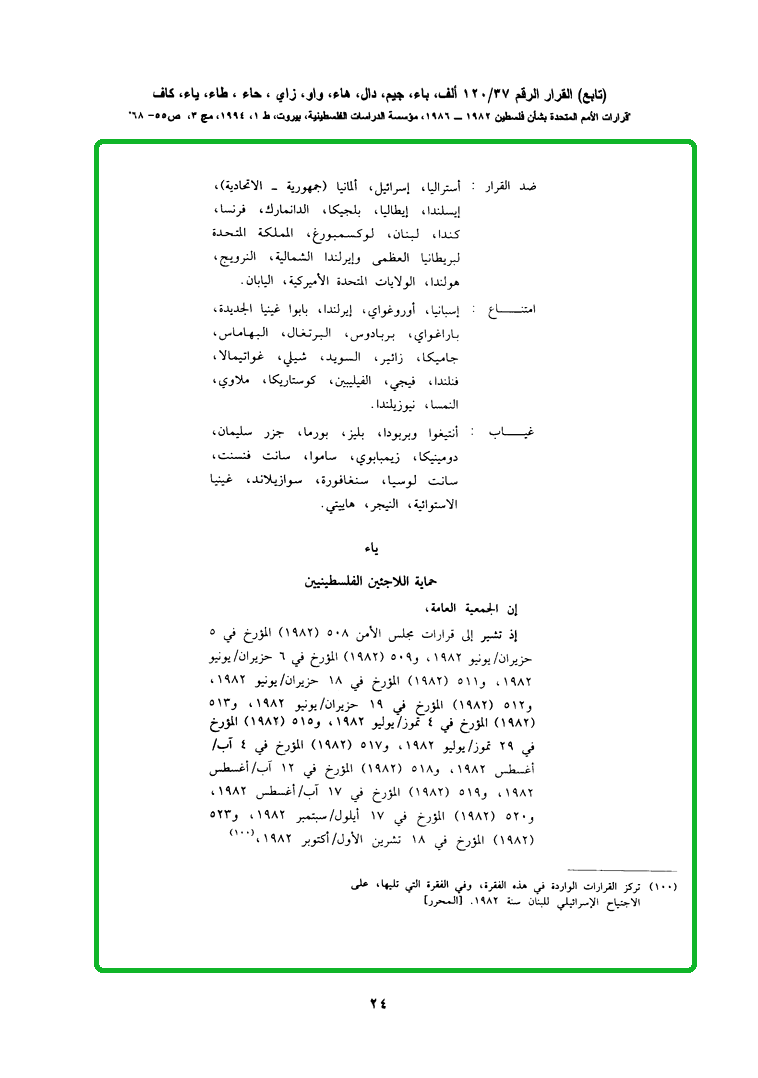 (تابع) القرار الرقم ١٢٠/٣٧ ألف، باء، جيم، دال، هاء، واو، زاي ، حاء ، طاء، ياء، كاف
"قرارات الأمم المتحدة بشأن فلسطين ١٩٨٢ ـــ ١٩٨٦، مؤسسة الدراسات الفلسطينية، بيروت، ط ١، ١٩٩٤، مج ٣، ص٥٥- ٦٨"
ضد القرار : أستراليا، إسرائيل، ألمانيا (جمهورية ـ الاتحادية)،
إيسلندا، إيطاليا، بلجيكا، الدانمارك، فرنسا،
كندا، لبنان، لوكسمبورغ، المملكة المتحدة
لبريطانيا العظمى وإيرلندا الشمالية، النرويج،
هولندا، الولايات المتحدة الأميركية، اليابان.
امتنـــــاع : إسبانيا، أوروغواي، إيرلندا، بابوا غينيا الجديدة،
باراغواي، بربادوس، البرتغال، البهاماس،
جاميكا، زائير، السويد، شيلي، غواتيمالا،
فنلندا، فيجي، الفيليبين، كوستاريكا، ملاوي،
النمسا، نيوزيلندا.
غيـــــاب : أنتيغوا وبربودا، بليز، بورما، جزر سليمان،
دومينيكا، زيمبابوي، ساموا، سانت فنسنت،
سانت لوسيا، سنغافورة، سوازيلاند، غينيا
الاستوائية، النيجر، هاييتي.
ياء
حماية اللاجئين الفلسطينيين
إن الجمعية العامة،
إذ تشير إلى قرارات مجلس الأمن ٥٠٨ (١٩٨٢) المؤرخ في ٥
حزيران/يونيو ١٩٨٢، و٥٠٩ (١٩٨٢) المؤرخ في ٦ حزيران/يونيو
١٩٨٢، و٥١١ (١٩٨٢) المؤرخ في ١٨ حزيران/يونيو ١٩٨٢،
و٥١٢ (١٩٨٢) المؤرخ في ١٩ حزيران/يونيو ١٩٨٢، و٥١٣
(١٩٨٢) المؤرخ في ٤ تموز/يوليو ١٩٨٢، و٥١٥ (١٩٨٢) المؤرخ
في ٢٩ تموز/يوليو ١٩٨٢، و٥١٧ (١٩٨٢) المؤرخ في ٤ آب/
أغسطس ١٩٨٢، و٥١٨ (١٩٨٢) المؤرخ في ١٢ آب/أغسطس
١٩٨٢، و٥١٩ (١٩٨٢) المؤرخ في ١٧ آب/أغسطس ١٩٨٢،
و٥٢٠ (١٩٨٢) المؤرخ في ١٧ أيلول/سبتمبر ١٩٨٢، و٥٢٣
(١٩٨٢) المؤرخ في ١٨ تشرين الأول/أكتوبر ١٩٨٢،(١٠٠)
(١٠٠) تركز القرارات الواردة في هذه الفقرة، وفي الفقرة التي تليها، على
الاجتياح الإسرائيلي للبنان سنة ١٩٨٢. [المحرر]
٢٤